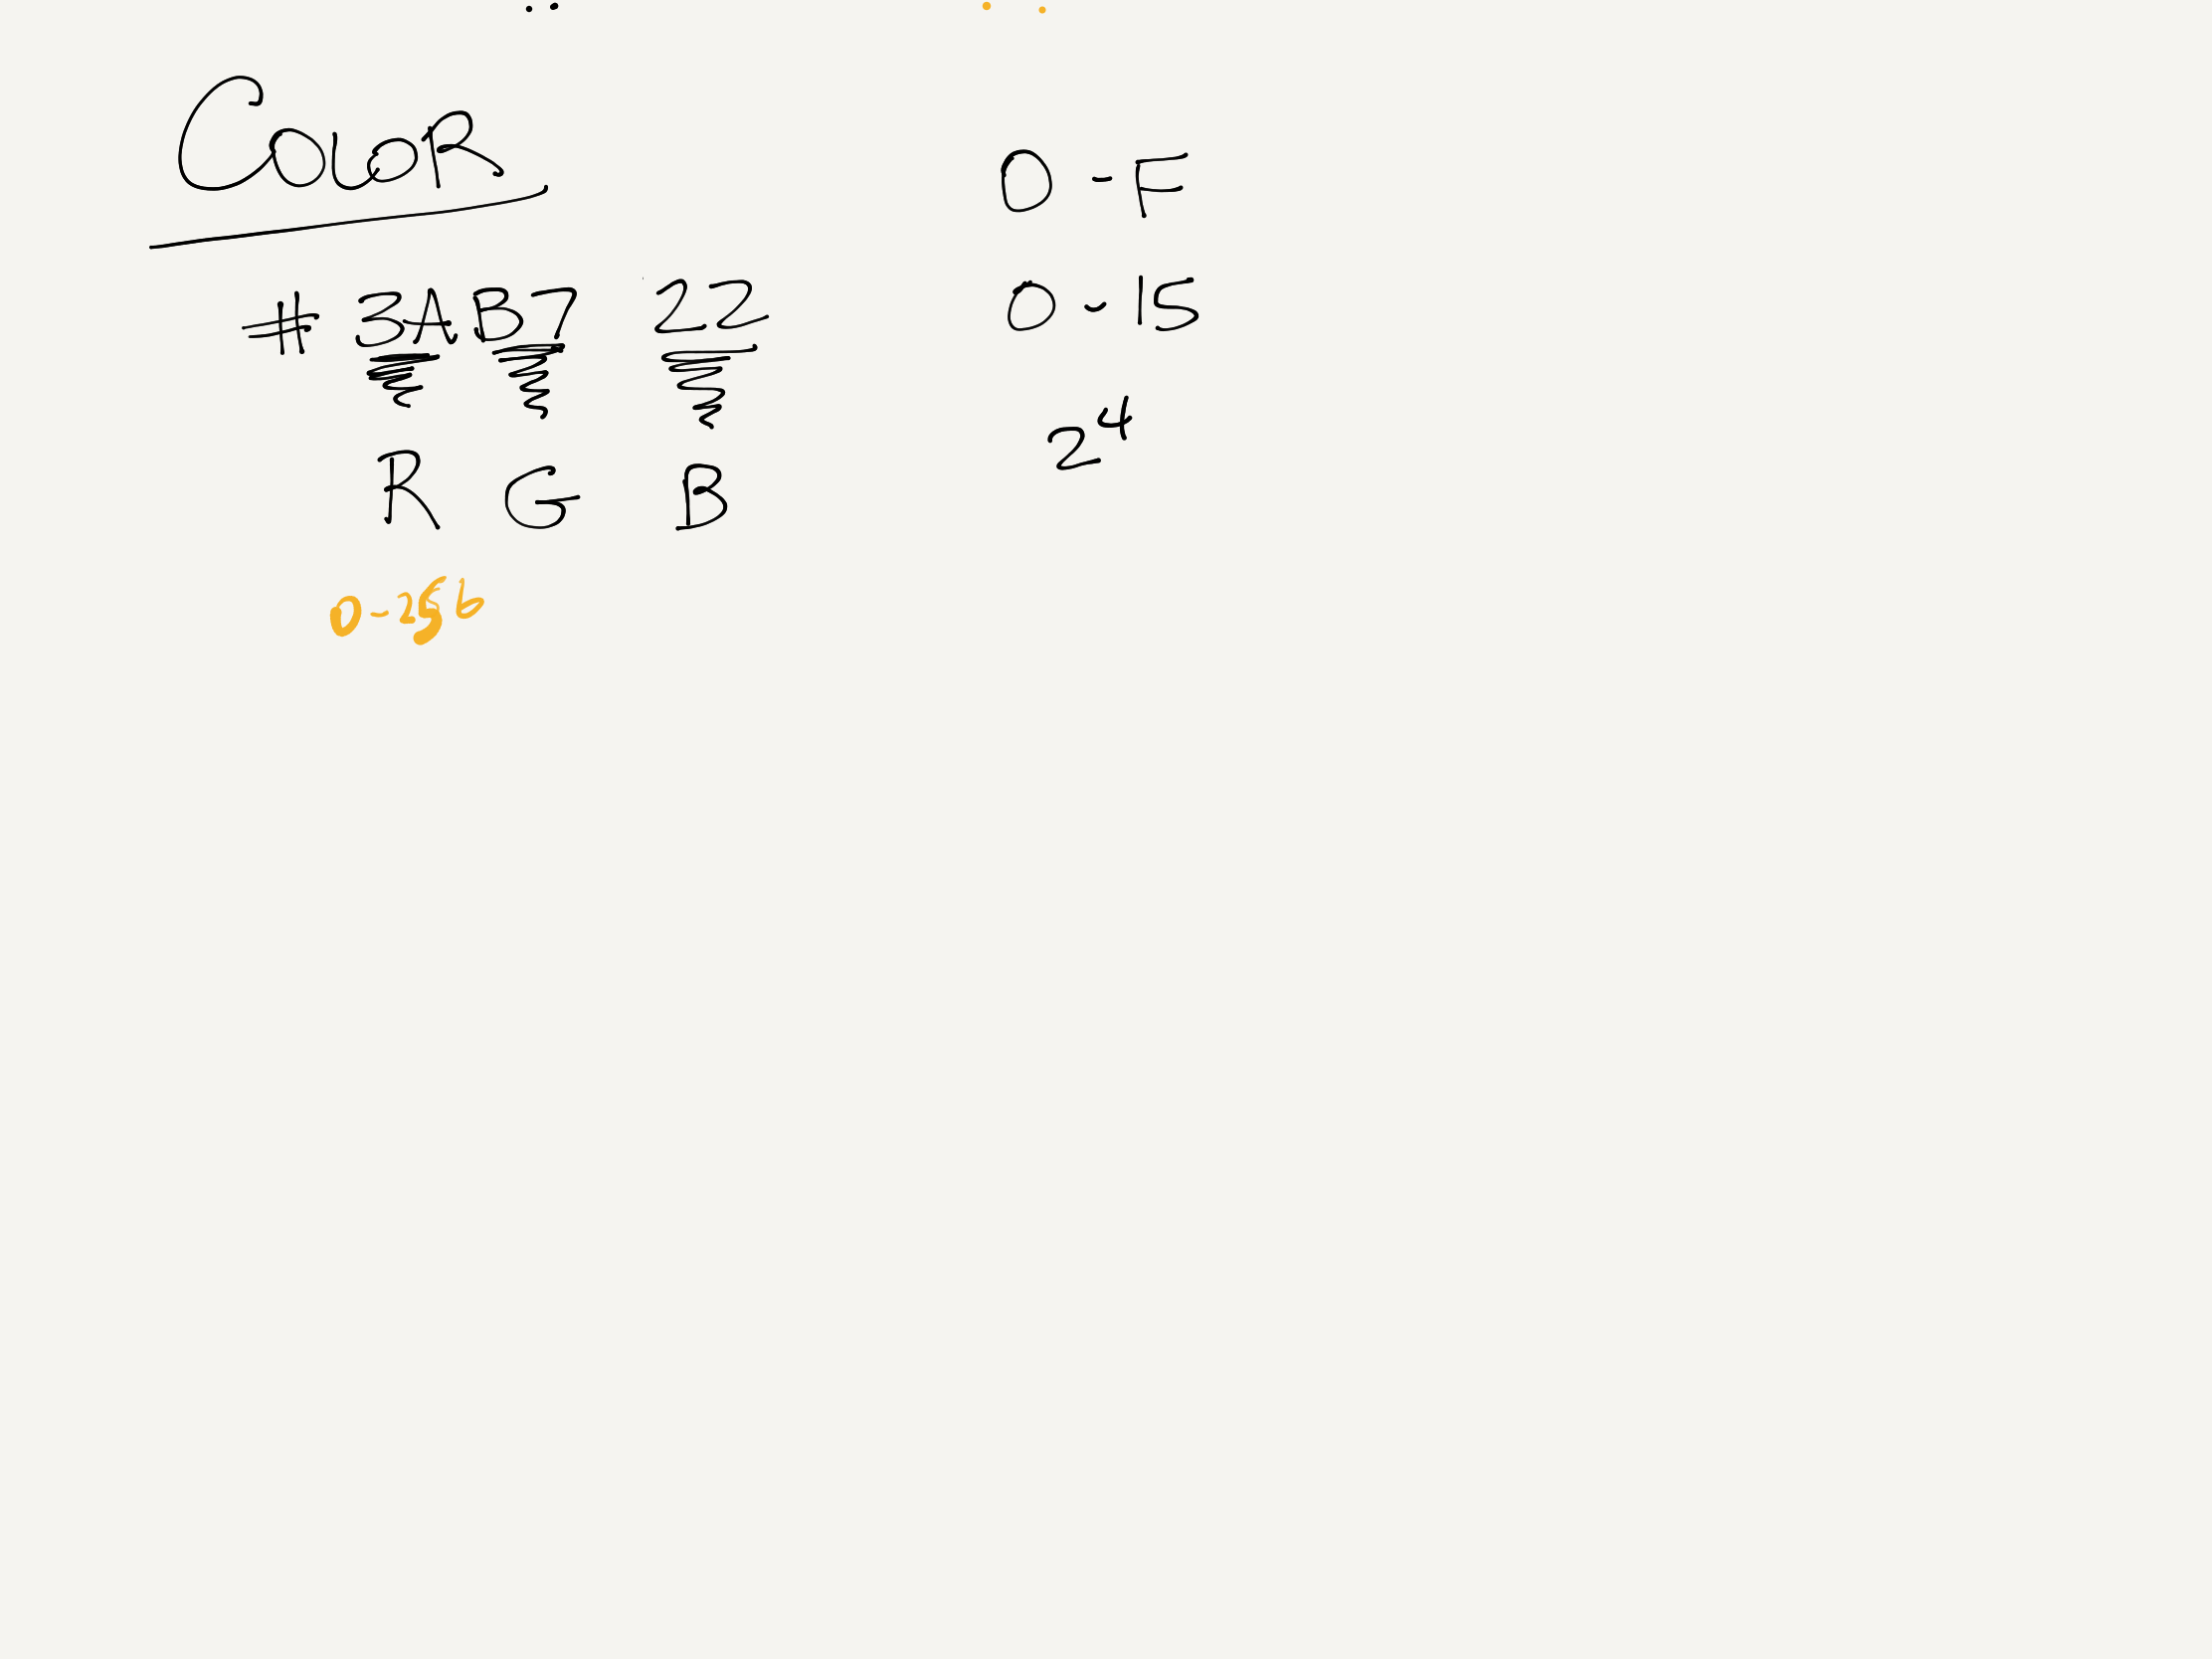 ColoR
# 3AB7 22
R G B
0-256
0-F
0-15
2⁴